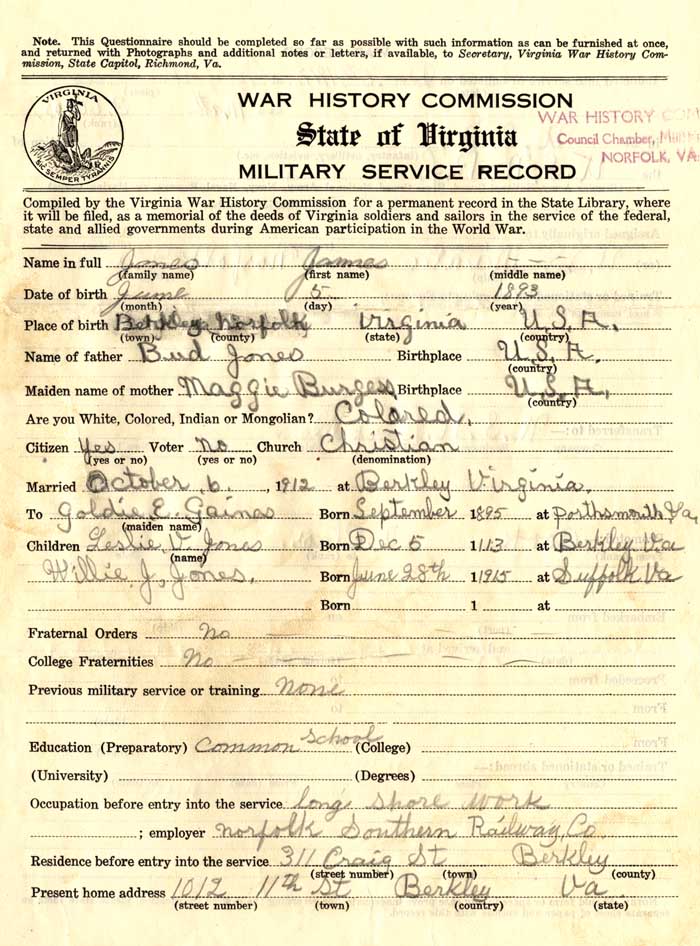 Note. This Questionnaire should be completed so far as possible with such information as can be furnished at once,
and returned with Photographs and additional notes or letters, if available, to Secretary, Virginia War History Com-
mission, State Capitol, Richmond, Va.
VIRGINIA
SIC SEMPER TYRANNIS
WAR HISTORY COMMISSION
State of Virginia
MILITARY SERVICE RECORD
WAR HISTORY COM
Council Chamber,
NORFOLK, VA
Compiled by the Virginia War History Commission for a permanent record in the State Library, where
it will be filed, as a memorial of the deeds of Virginia soldiers and sailors in the service of the federal,
state and allied governments during American participation in the World War.
Name in full Jones James - - -
(family name) (first name) (middle name)
Date of birth June 5 1893
(month) (day) (year)
Place of birth Berkley Norfolk Virginia U.S.A.
(town) (county) (state) (country)
Name of father Bud Jones Birthplace U.S.A.
(country)
Maiden name of mother Maggie Burgess Birthplace U.S.A.
(country)
Are you White, Colored, Indian or Mongolian? Colored,
Citizen Yes Voter no Church Christian
(yes or no) (yes or no) (denomination)
Married October 6, 1912 at Berkley Virginia,
To Goldie E. Gaines Born September 1895 at Porthsmouth Va,
(maiden name)
Children Leslie V. Jones Born Dec 5 1113 at Berkley Va
(name)
Willie J, Jones, Born June 28th 11915 at Suffolk Va
Born 1 at
Fraternal Orders No -
College Fraternities No - - - - -
Previous military service or training None
Education (Preparatory) Common School (College)
(University) (Degrees)
Occupation before entry into the service long shore work
; employer Norfolk Southern Railway, Co.
Residence before entry into the service 311 Craig St Berkley
(street number) (town) (county)
Present home address 1012 11th St Berkley Va
(street number) (town) (country) (state)